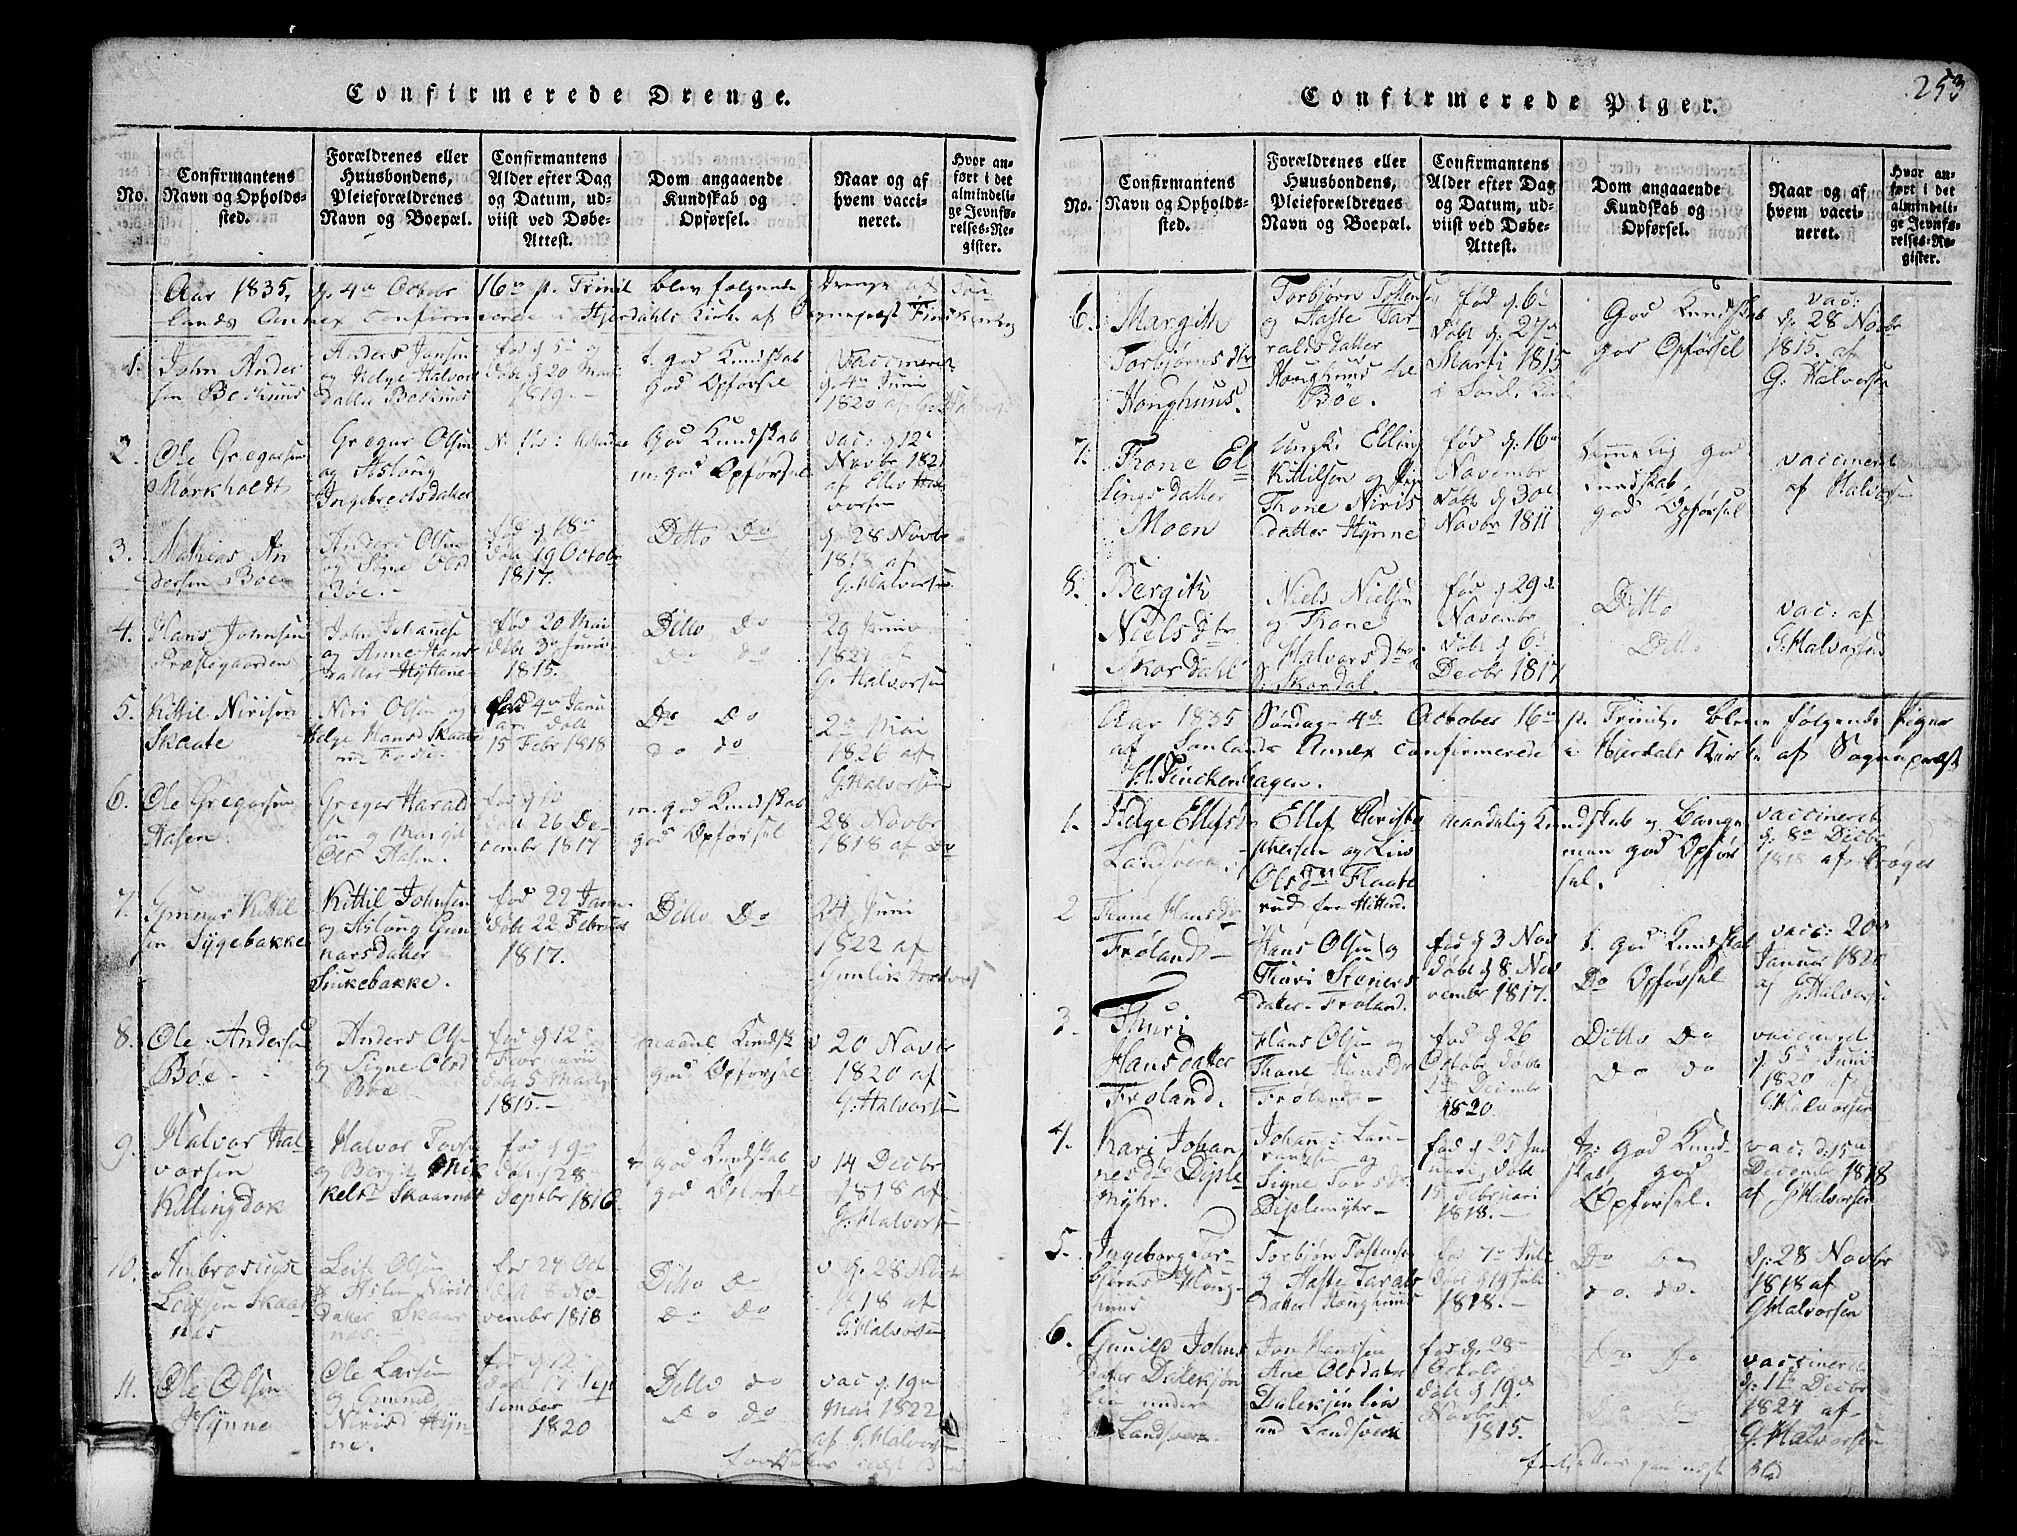 Confirmerede Drenge.
No.
Confirmantens
Navn og Opholds-
sted.
Forældrenes eller
Huusbondens,
Pleieforældrenes
Navn og Boepæl.
Confirmantens
Alder efter Dag
og Datum, ud-
viist ved Døbe-
Attest.
Dom angaaende
Kundskab og
Opførsel.
Naar og af
hvem vacci-
neret.
Hvor an-
ført i det
almindeli-
ge Jevnfø-
relses-Re-
gister.
Aar 1835, d. 4de Octobr 16de p. Trinit blev følgende Drenge af
lands Annex confirmerede i Hjerdahls Kirke af Sognepræst
1. John Ander
sen
Anders Jonsen
og Helge Halvors
datter
født d 5te og
døbt d 20 Marti
1819.
t. god Kundskab
god Opførsel
Vaccineret
d. 4de Juni
1820 af G. Halvors
2. Ole Gregersen
Mørkholdt
Gregar Olsen
og Asloug
Ingebretsdatter
God Kundskab
m. god Opførsel
vac: d 12te
Novbr 1821
af Ellev Hal
vorsen
3. Mathias An
dersen Bøe
Anders Olsen
og Signe Olsd
Bøe.
fød d 18de
døbt 19 Octobr
1817.
Ditto Do
d. 28 Novbr
1818 af
G. Halvorsen
4. Hans Johnsen
Præstegaarden
John Johannese
og Anne Hans
datter Hyttene
fød 20 Mai
døbt 3de Juni
1815.
Ditto do
do do
29 Juni
1821 af
G. Halvorsen
5. Kittil Nirisen
Skaate
Niri Olsen og
Helge Hansd Skaate
fød 4de Janu
ar døbt
15 Febr 1818
Do do
do do
2den Mai
1826 af
G. Halvorsen
6. Ole Gregersen
Hasen
Greger Harald
sen og Margit
Olsd Hasen.
fød d 10
døbt 26 De-
cember 1817
m. god Kundskab
god Opførsel
28 Novbr
1818 af Do
7. Gunnar Kittil
sen Sygebakke
Kittil Johnsen
og Aslaug Gun
narsdatter
Siukebakke.
fød 22 Januar
døbt 22 Februar
1817.
Ditto Do
24 Juni
1822 af
Gunlik
8. Ole Andersen
Bøe
Anders Olsen
og Signe Olsd
Bøe
fød d 12te
Februarii
døbt 5 Marti
1815.
maadl Kundsk
god Opførsel
v 20 Novbr
1820 af
G. Halvorsen
9. Halvor Hal
vorsen
Killingdok
Halvor Tovsen
og Bergit Mik
kelsd Skaarnes
fød d 9de
døbt d 28
Septbr 1816
god Kundskab
god Opførsel
v 14 Decbr
1818 af
G. Halvorsen
10. Ambrosius
Leifsen Skaar
nes
Leif Olsen
og Aslou Niris
datter Skaar
nes.
fød 27 Oct
døbt 8 No-
vember 1818
Ditto do
Do Do
v d. 28 Novbr
1818 af
G. Halvorsen
11. Ole Olsen
Hynne
Ole Larsen
og Gunild
Nirisd Hyn
ne.
fød d 12te
døbt 17 Sep
tember
1820
Ditto do
do do
vac d. 19de
Mai 1822
af G. Halvorsen
Confirmerede Piger.
253
No.
Confirmantens
Navn og Opholds-
sted.
Forældrenes eller
Huusbondens,
Pleieforældrenes
Navn og Boepæl.
Confirmantens
Alder efter Dag
og Datum, ud-
viist ved Døbe-
Attest.
Dom angaaende
Kundskab og
Opførsel.
Naar og af
hvem vacci-
neret.
Hvor an-
ført i det
almindeli-
ge Jevnfø-
relses-Re-
gister.
6. Margith
Torbjørnsdtr
Honghuus.
Torbjørn Tostens
og Haste Tar-
raldsdatter
Honghuus
Bøe.
fød d. 6te
døbt d. 27de
Marti 1815
God Kundskab
god Opførsel
vac:
d. 28 Novbr
1815. af
G: Halvorsen
7. Trone El
lingsdatter
Moen
Ungk: Elling
Kittilsen og Pige
Trone Niris
datter Hynne
fød d. 16de
Novembr
døbt d 30te
Novbr 1811
temmelig god
Kundskab,
god Opførsel
vaccineret
af Halvorsen
8. Bergith
Nielsdtr
Skordahl
Niels Nielsen
og Trone
Halvorsdtr
Skordal.
fød d 29de
Novembr
døbt d 6te
Decbr 1817
Ditto
Ditto
vac: af
G. Halvorsen
Aar 1835 Søndag 4de October 16de p. Trinit. bleve følgende Piger
af Sonlands Annex confirmerede i Hjerdals Kirke af Sognepræst
Finckenhagen.
1. Helge Ellefsd
Landsverk
Ellef Christo
phersen og Liv
Olsdtr Flaate
rud fra Hitterd.
maadelig Kundskab og
men god Opfør
sel.
vaccineret
d. 8de Decbr
1818 af Krøger
2 Trone Hansdtr
Frøland
Hans Olsen og
Thuri Steners
datter Frøland.
fød d 3 Nov
døbt d 8 No
vembr 1817.
t. god Kundskab
Do Opførsel
vacc: 20de
Januar 1820
af G. Halvorsen
3. Thuri
Hansdatter
Frøland.
Hans Olsen og
Trone Hansdtr
Frøland
fød d 26
Octobr døbt
2den Decembr
1820
Ditto Do
do do
vaccineret
d 5te Juni
1820 af
G. Halvorsen
4. Kari Johan
nesdtr Diple
myhr.
Johannes Lau-
rantsen og
Signe Torsdr
Diplemyhr
fød d 25 Ja
nuari døbt
15 Februari
1818.
t: god Kund-
skab, god
Opførsel.
vac: d: 15de
Decembr 1818
af G. Halvorsen
5. Ingeborg Tor-
bjørnsd Hong-
huus
Torbjørn Tostensen
og Haste Tarals
datter Honghuus
fød 7de Juli
døbt d 19 Juli
1818.
Do Do
do. do.
d. 28 Novbr
1818 af
G Halvorsen
6. Gunild Johns
datter Dalesjøn
lia under
Landsverk
Jon Hanssen
Ane Olsdatter
Dalesjønlien
und Landsverk
fød d. 28de
Octobr
døbt d 19de
Novbr
1815.
Do Do
vaccineret
d: 1te Decbr
1824 af
G. Halvorsen
fortsættes paa næste
Blad